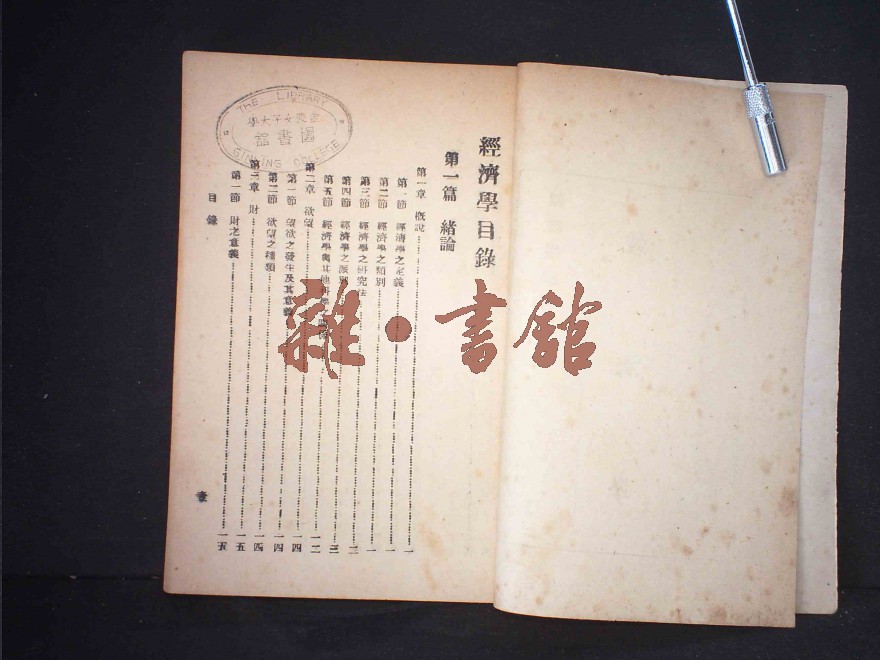 經濟學目錄
第一篇 緒論
第一章 概說……一
第一節 經濟學之定義……一
第二節 經濟學之類別……一
第三節 經濟學之研究法……二
第四節 經濟學之派別……二
第五節 經濟學與其他科學……三
第二章 欲望……一二
第一節 望欲之發生及其意義……一四
第二節 欲望之種類……一四
第三章 財……一四
第一節 財之意義……一五
目錄
THE LIBRARY
金陵女子大學
圖書館
GINLING COLLEGE
雜·書館